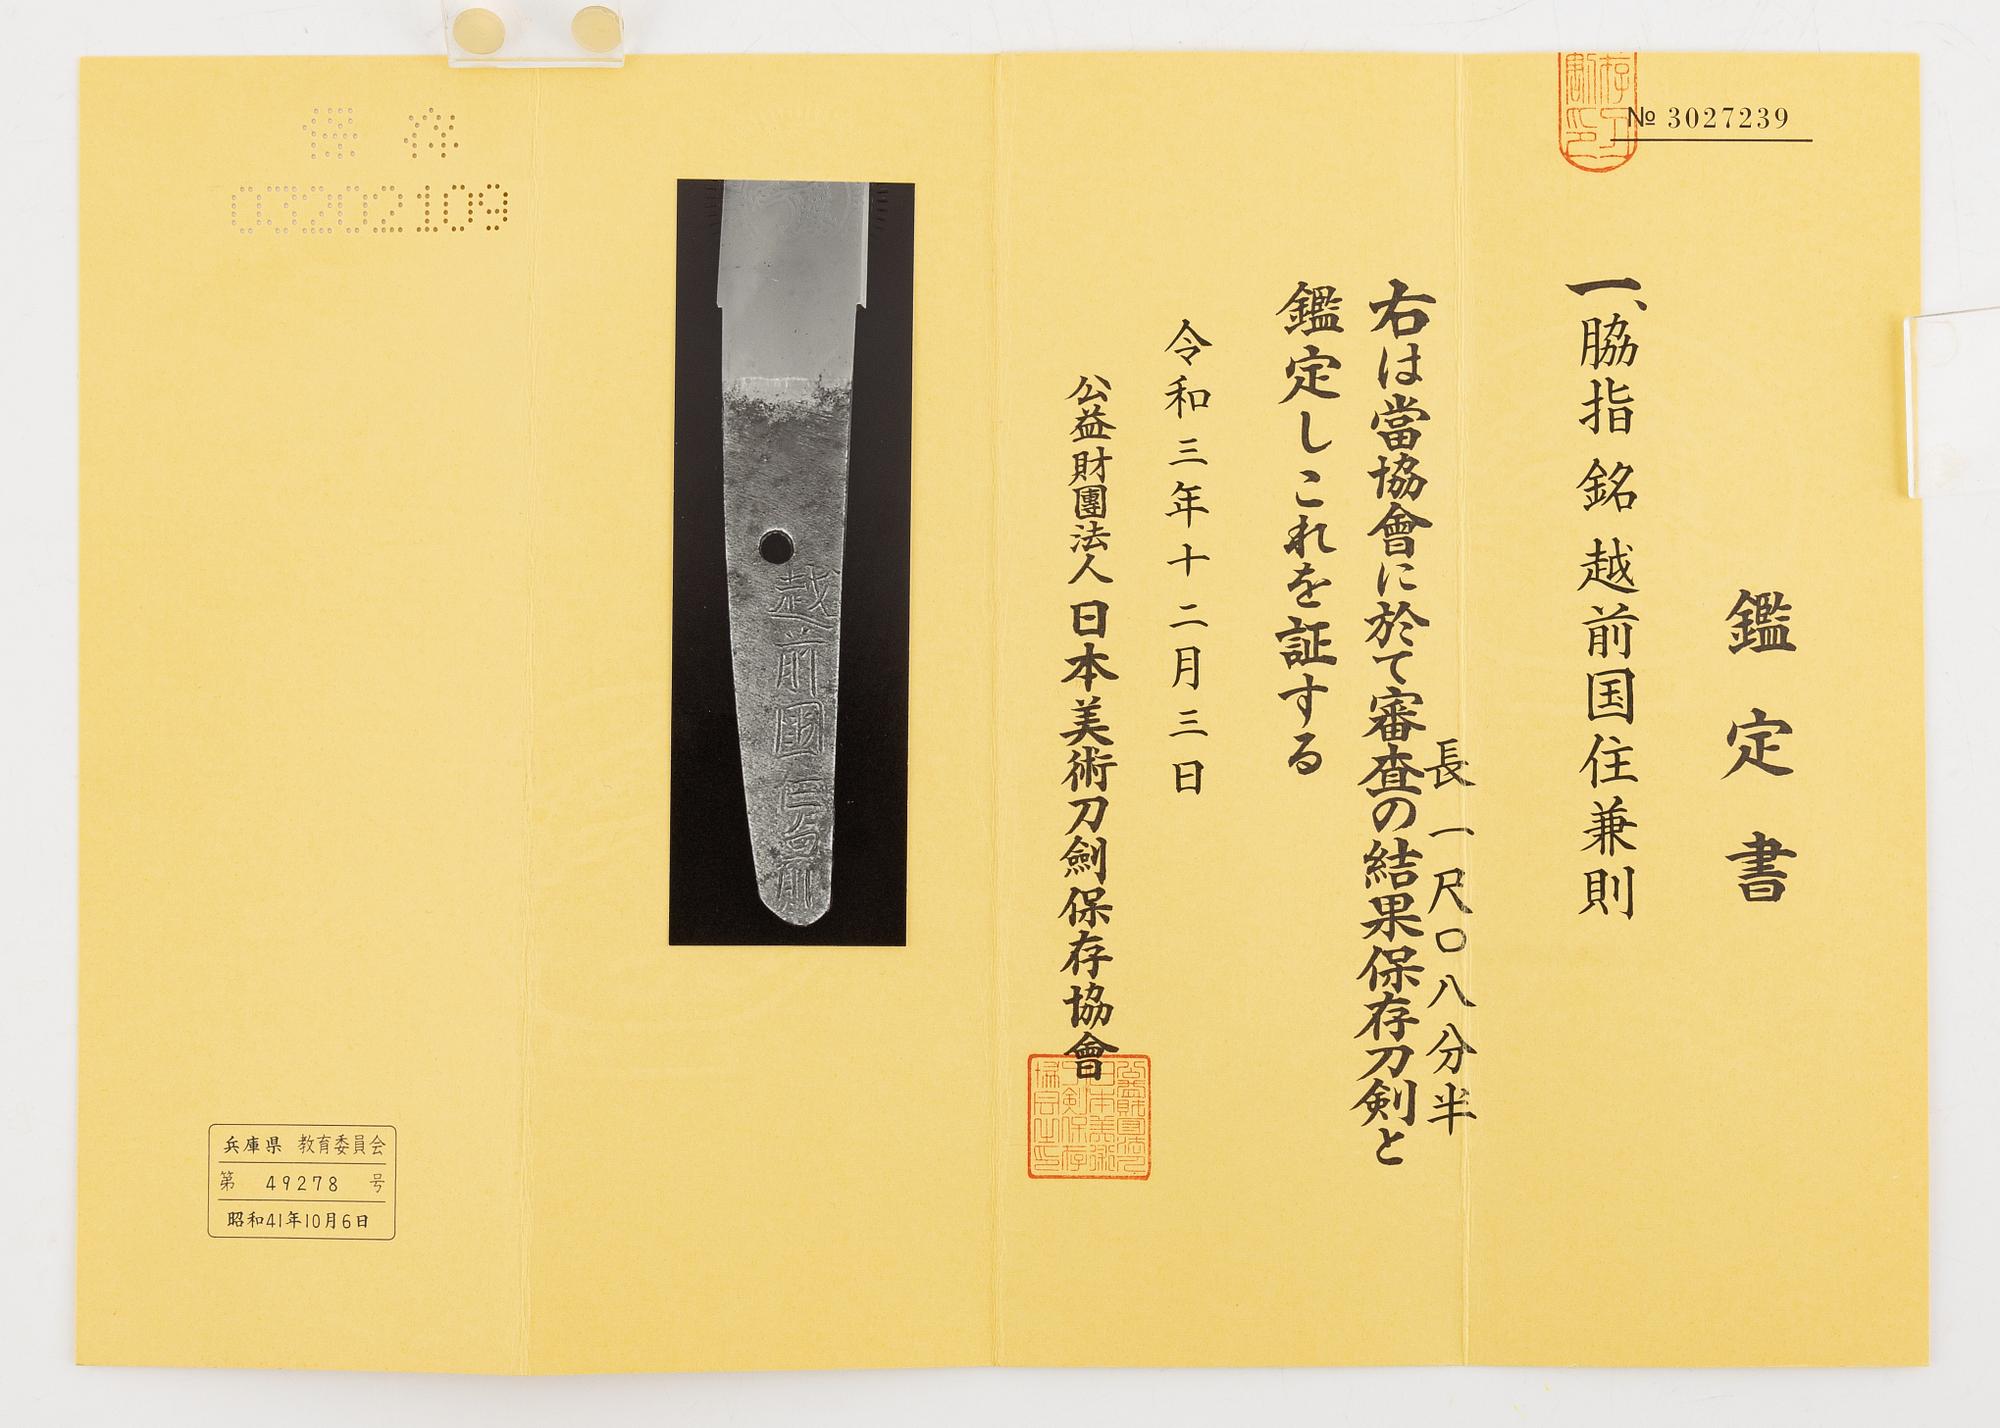 № 3027239
鑑定書
一、脇指 銘 越前国住兼則
長 一尺〇八分半
右は當協會に於て審査の結果保存刀剣と
鑑定しこれを証する
令和三年十二月三日
公益財團法人 日本美術刀劍保存協會
越前國住兼則
保存
03202109
兵庫県 教育委員会
第 49278 号
昭和41年10月6日